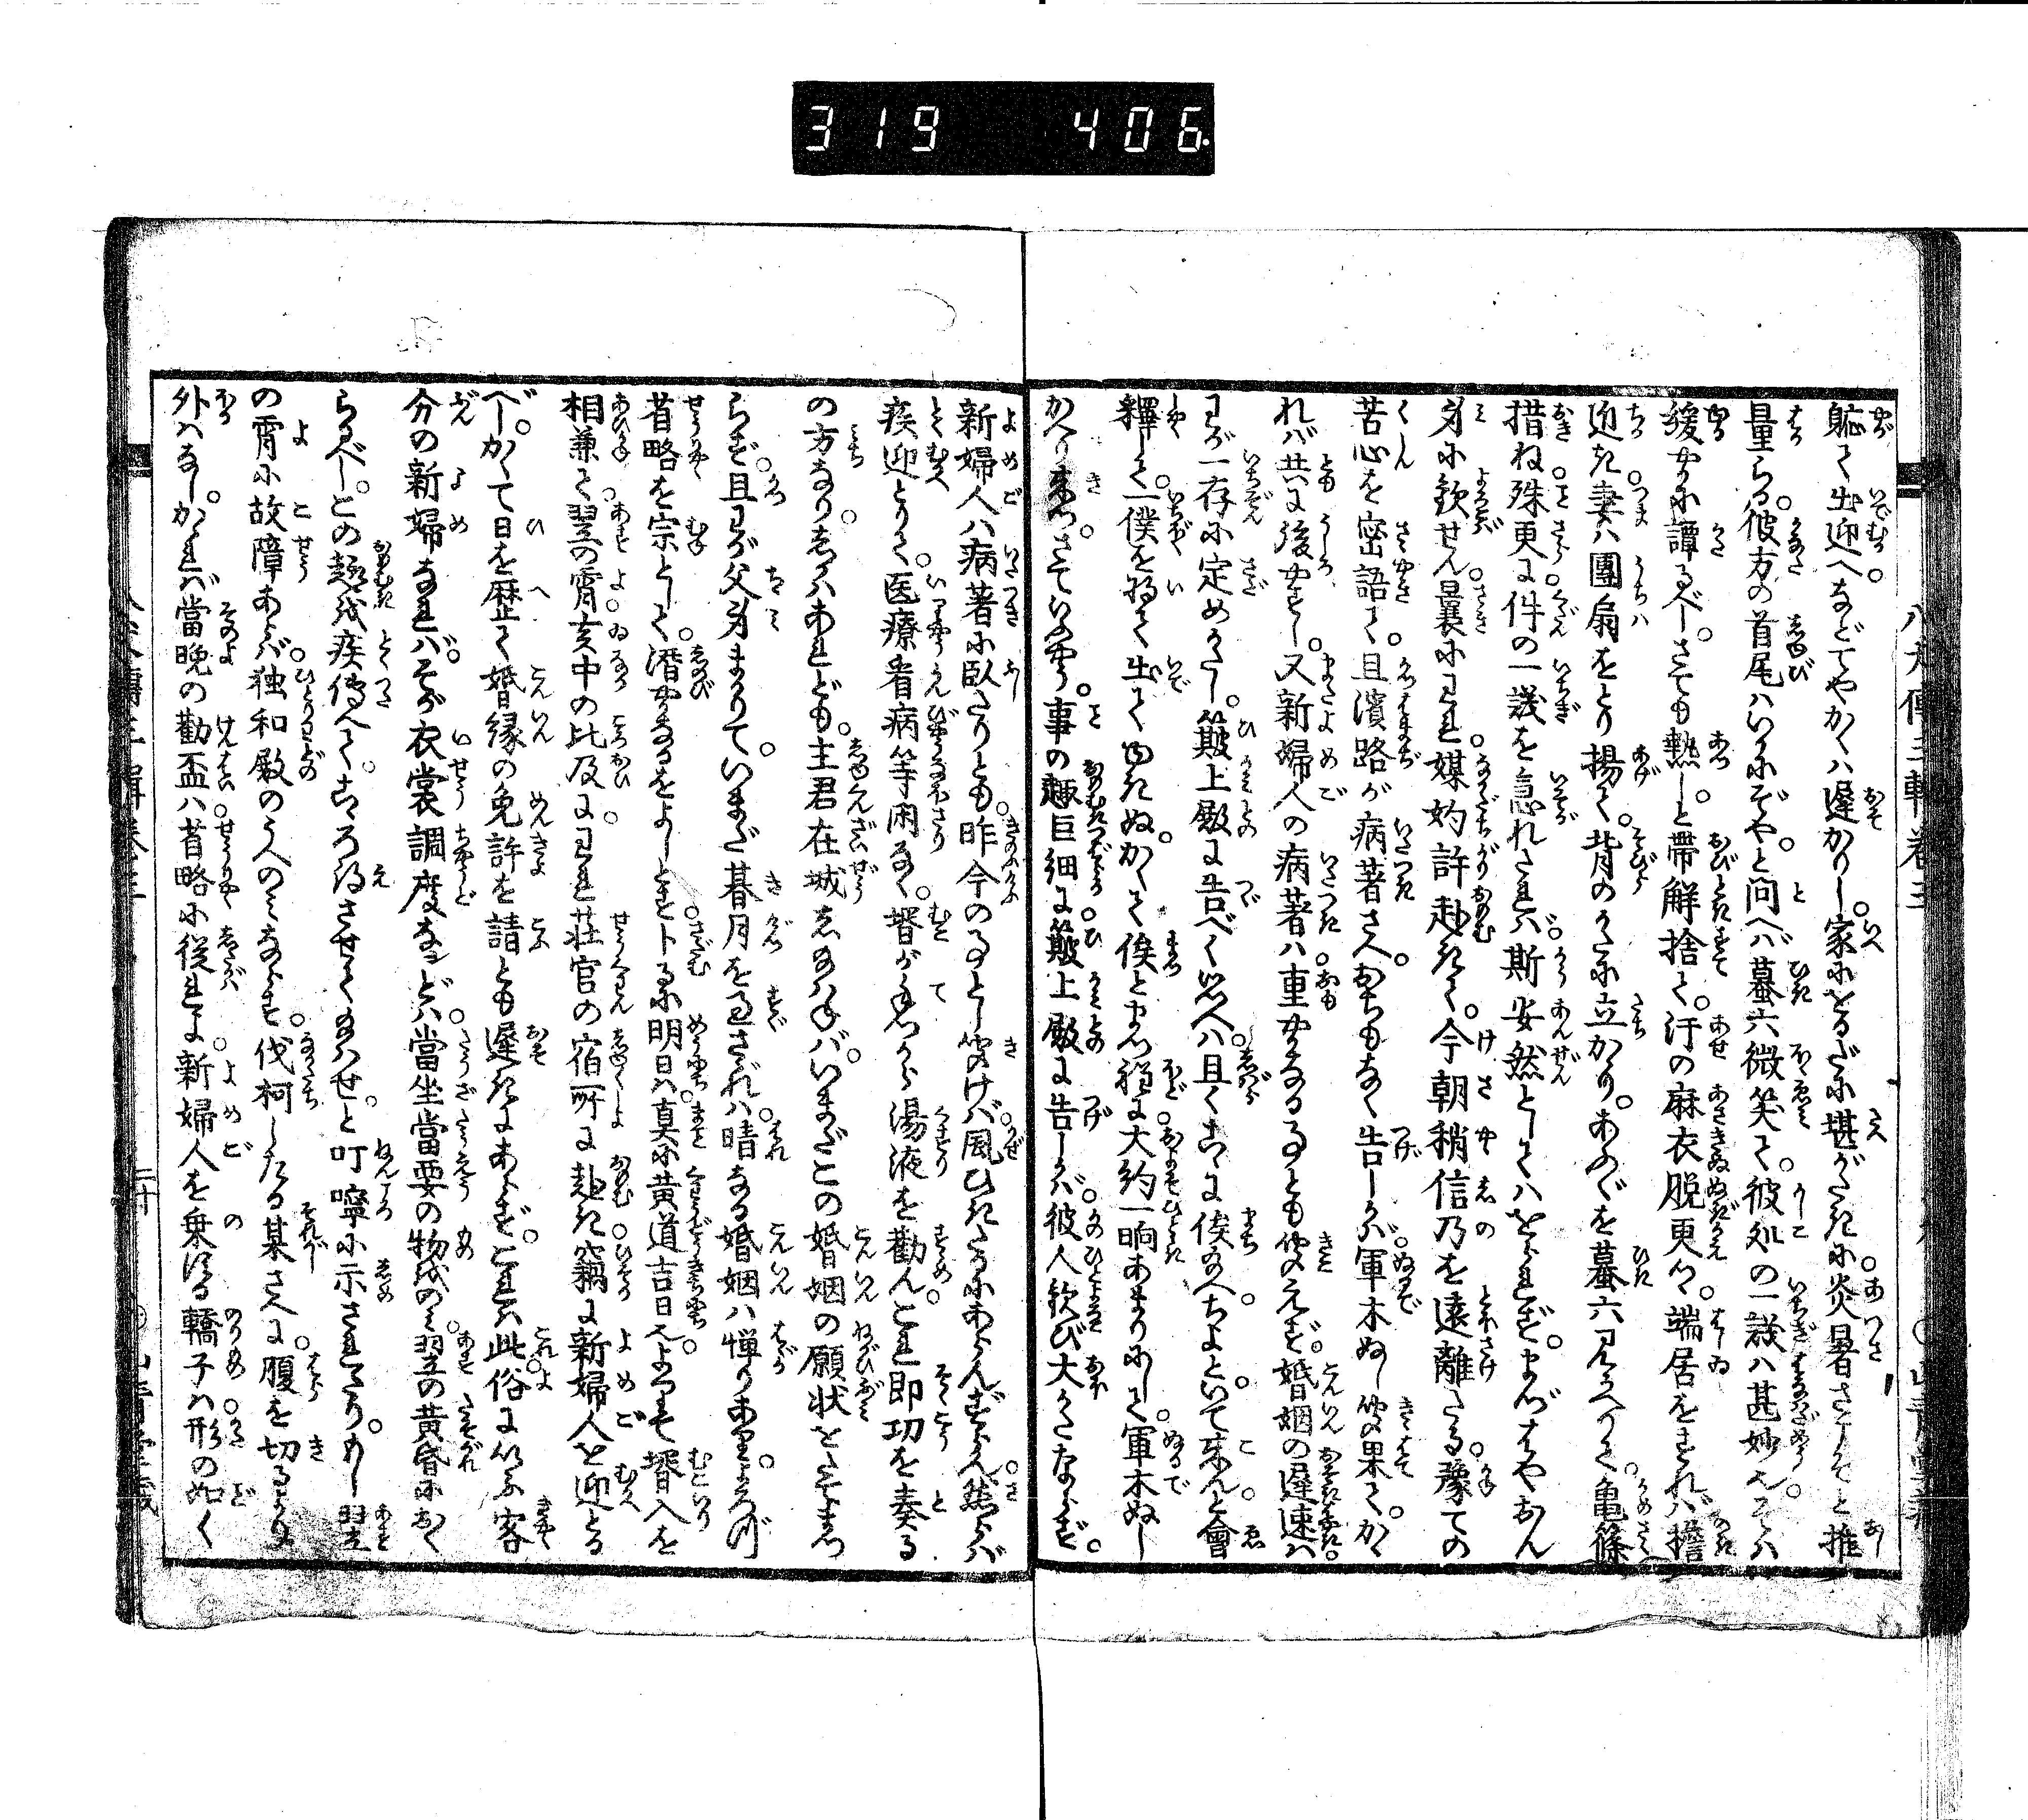 319 406
八犬傳三輯巻三
軈て出迎へなどてやかくは遅かりし家にをるだに堪がたきに炎暑さこそと推
量らる彼方の首尾はいかにぞやと問へば蟇六微笑て彼処の一議は甚妙也そは
緩やかに譚るべしさても熱しと帶解捨て汗の麻衣脱更つ端居をすれば擔
近き妻は團扇をとり揚て背のかたに立かりあふぐを蟇六見かへりて亀篠
措ね殊更に件の一議を急れたれば斯安然としてはをられずまづはやおん
身に歓せん曩にわれ媒妁許赴きて今朝稍信乃を遠離たる豫ての
苦心を密語て且濱路が病著さへおちもなく告しかば軍木ぬし聞果てか
れば共に後やすし又新婦人の病著は重やかなるとも聞えず婚姻の遅速は
わが一存に定めがたし簸上殿に告べく思へは且くこゝに俟給へちよといて来んと會
釋して一僕を将て出てゆきぬかくて俟とまつ程に大約一晌あまりにして軍木ぬし
かへり来つさていふやう事の趣巨細に簸上殿に告しかば彼人歓び大かたならず
新婦人は病著に臥たりとも昨今の事とし聞けば風ひきたるにあらんずらん然らば
疾迎とりて医療看病等閑なく壻が手づから湯液を勸んこれ即功を奏る
の方なりしかはあれども主君在城したまはねばいまだこの婚姻の願状をたてまつ
らず且わが父身まかりていまだ朞月を過さざれは晴なる婚姻は憚りありよろづ
省略を宗として潜やかなるをよしとす卜るに明日は真に黄道吉日也よりて壻入を
相兼て翌の宵亥中の比及にわれ荘官の宿所に赴き竊に新婦人を迎とる
べしかくて日を歴て婚縁の免許を請とも遅きにあらずこれは此俗にいふ客
分の新婦なればそが衣裳調度などは當坐當要の物のみ翌の黄昏におく
らるべしこの趣を疾傳へてこゝろ得させて給はせと叮嚀に示されたりもし翌
の宵に故障あらば独和殿のうへのみならず伐柯したる某さへに腹を切るより
外はなしかゝれば當晩の勸盃は省略に従れよ新婦人を乗する轎子は形の如く
二十